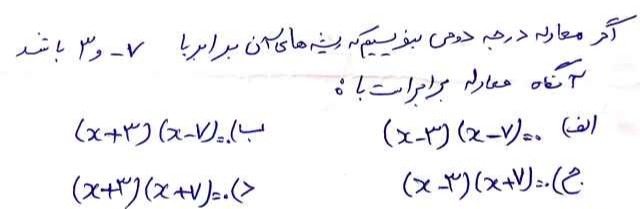 اگر معادله درجه دومی بنویسیم که ریشه های آن برابر با ۷- و ۳ باشد
آنگاه معادله برابر است با :
الف) (x-۳)(x-۷)=۰ ب) (x+۳)(x-۷)=۰
ج) (x-۳)(x+۷)=۰ د) (x+۳)(x+۷)=۰